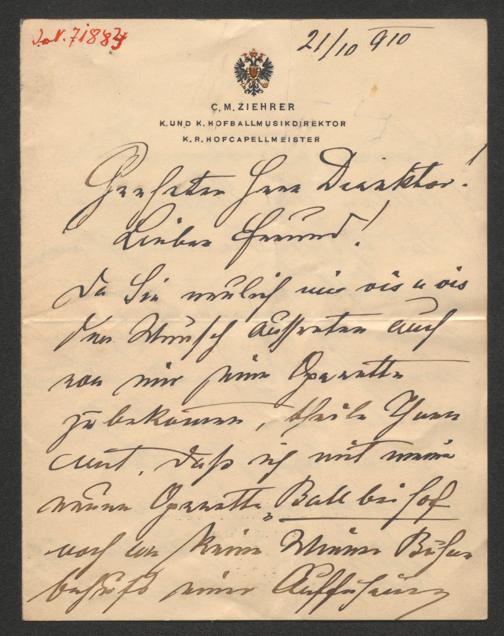 J.N. 71884
21/10 910
C. M. ZIEHRER
K. UND K. HOFBALLMUSIKDIREKTOR
K. R. HOFCAPELLMEISTER
Geehrter Herr Direktor!
Lieber Freund!
Da Sie neulich mir vis a vis
den Wunsch äusserten auch
von mir eine Operette
zu bekommen, theile Ihnen
mit, daß ich mit meiner
neuen Operette „Ball bei Hof
noch an keine Wiener Bühne
behufs einer Aufführung